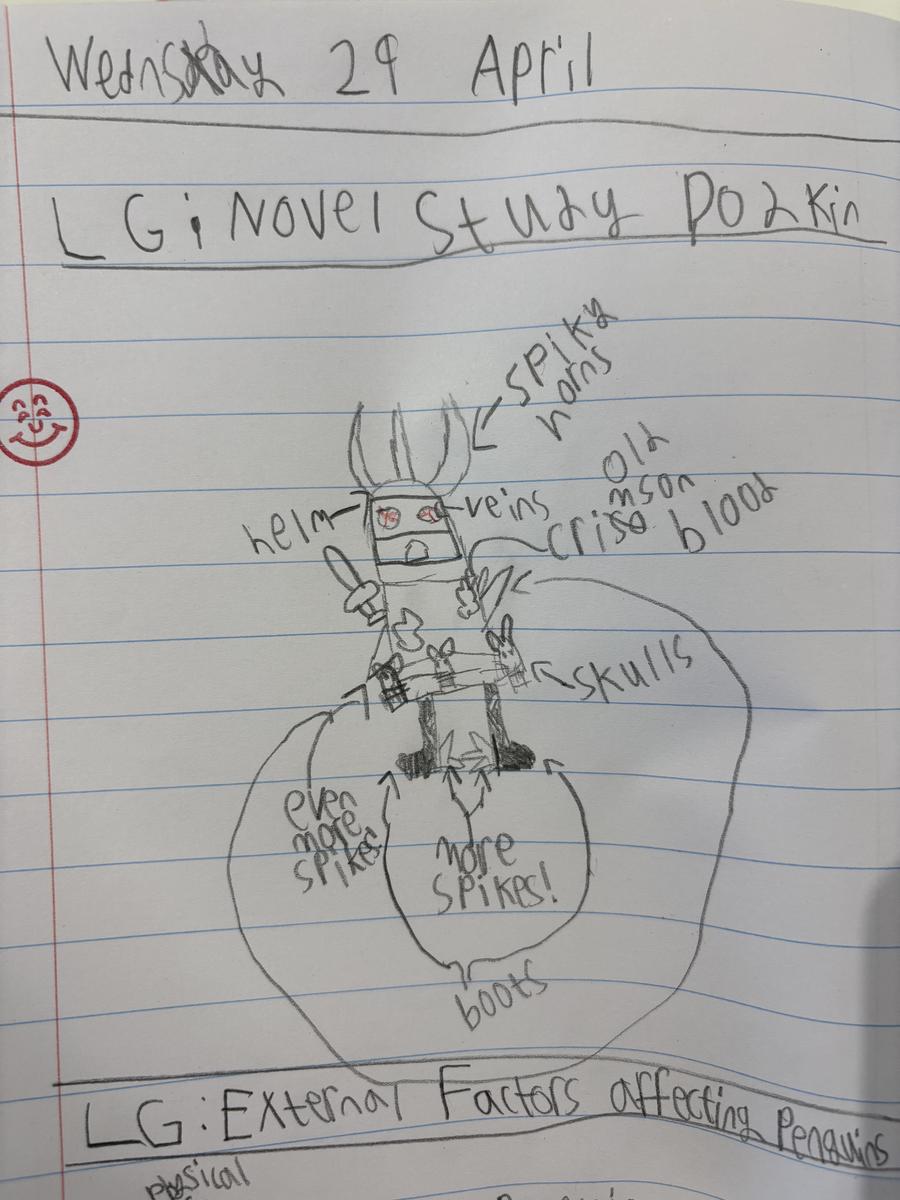 Wednsday 29 April
LG: Novel Study Podkin
spiky
horns
old
crimson
blood
veins
helm
skulls
even
more
spikes
more
spikes!
boots
LG: External Factors affecting Penguins
physical